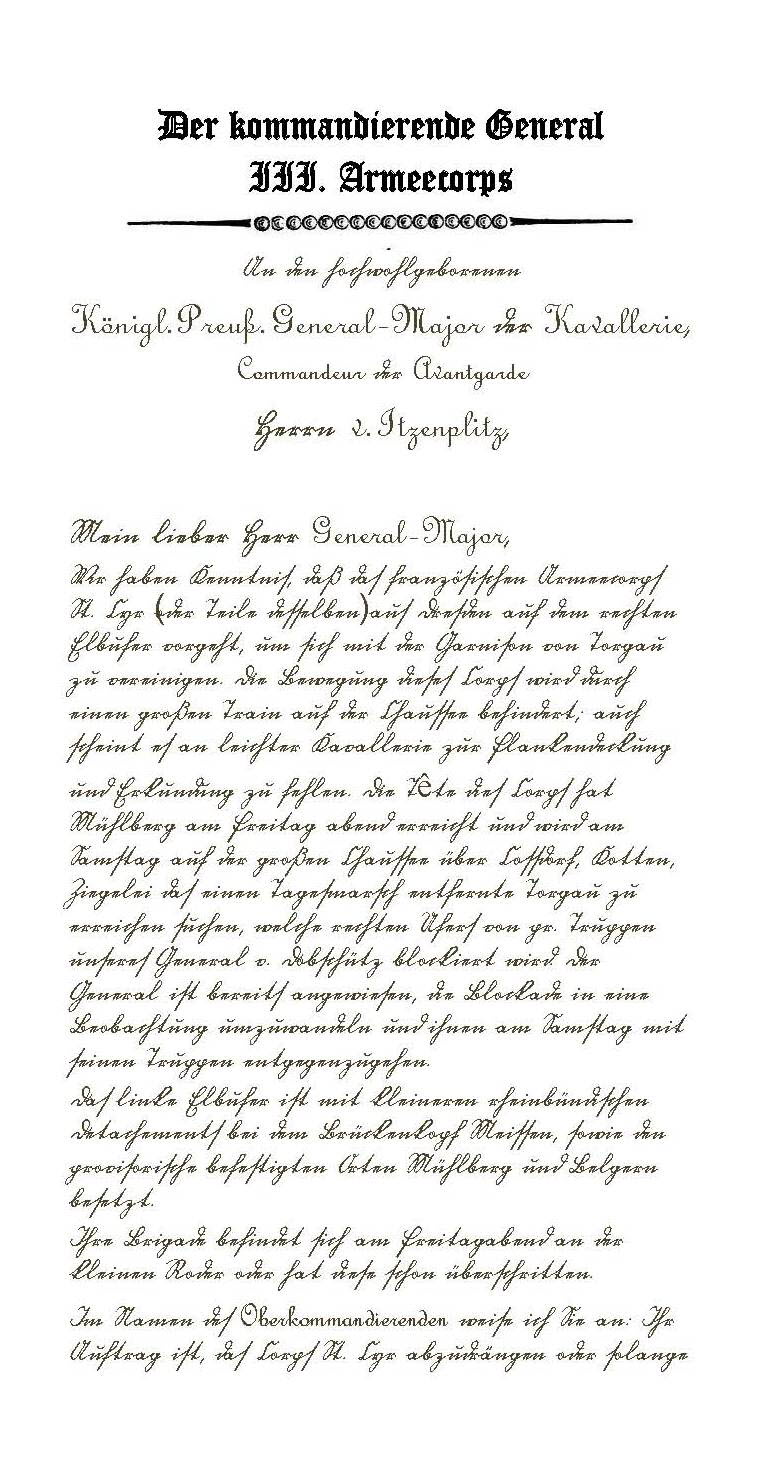 Der kommandierende General
III. Armeecorps
An den hochwohlgeborenen
Königl. Preuß. General-Major der Kavallerie,
Commandeur der Avantgarde
Herrn v. Itzenplitz,
Mein lieber Herr General-Major,
Wir haben Kenntnis, daß das französischen Armeecorps
St. Cyr (der Teile desselben) aus Dresden auf dem rechten
Elbufer vorgeht, um sich mit der Garnison von Torgau
zu vereinigen. Die Bewegung dieses Corps wird durch
einen großen Train auf der Chaussee behindert; auch
scheint es an leichter Kavallerie zur Flankendeckung
und Erkundung zu fehlen. Die Tête des Corps hat
Mühlberg am Freitag abend erreicht und wird am
Samstag auf der großen Chaussee über Cossdorf, Kotten,
Ziegelei das einen Tagesmarsch entfernte Torgau zu
erreichen suchen, welche rechten Ufers von pr. Truppen
unseres General v. Dobschütz blockiert wird. Der
General ist bereits angewiesen, die Blockade in eine
Beobachtung umzuwandeln und ihnen am Samstag mit
seinen Truppen entgegenzugehen.
Das linke Elbufer ist mit kleineren rheinbündischen
Detachements bei dem Brückenkopf Meissen, sowie den
provisorische befestigten Orten Mühlberg und Belgern
besetzt.
Ihre Brigade befindet sich am Freitagabend an der
kleinen Roder oder hat diese schon überschritten.
Im Namen des Oberkommandierenden weise ich Sie an: Ihr
Auftrag ist, das Corps St. Cyr abzudrängen oder solange